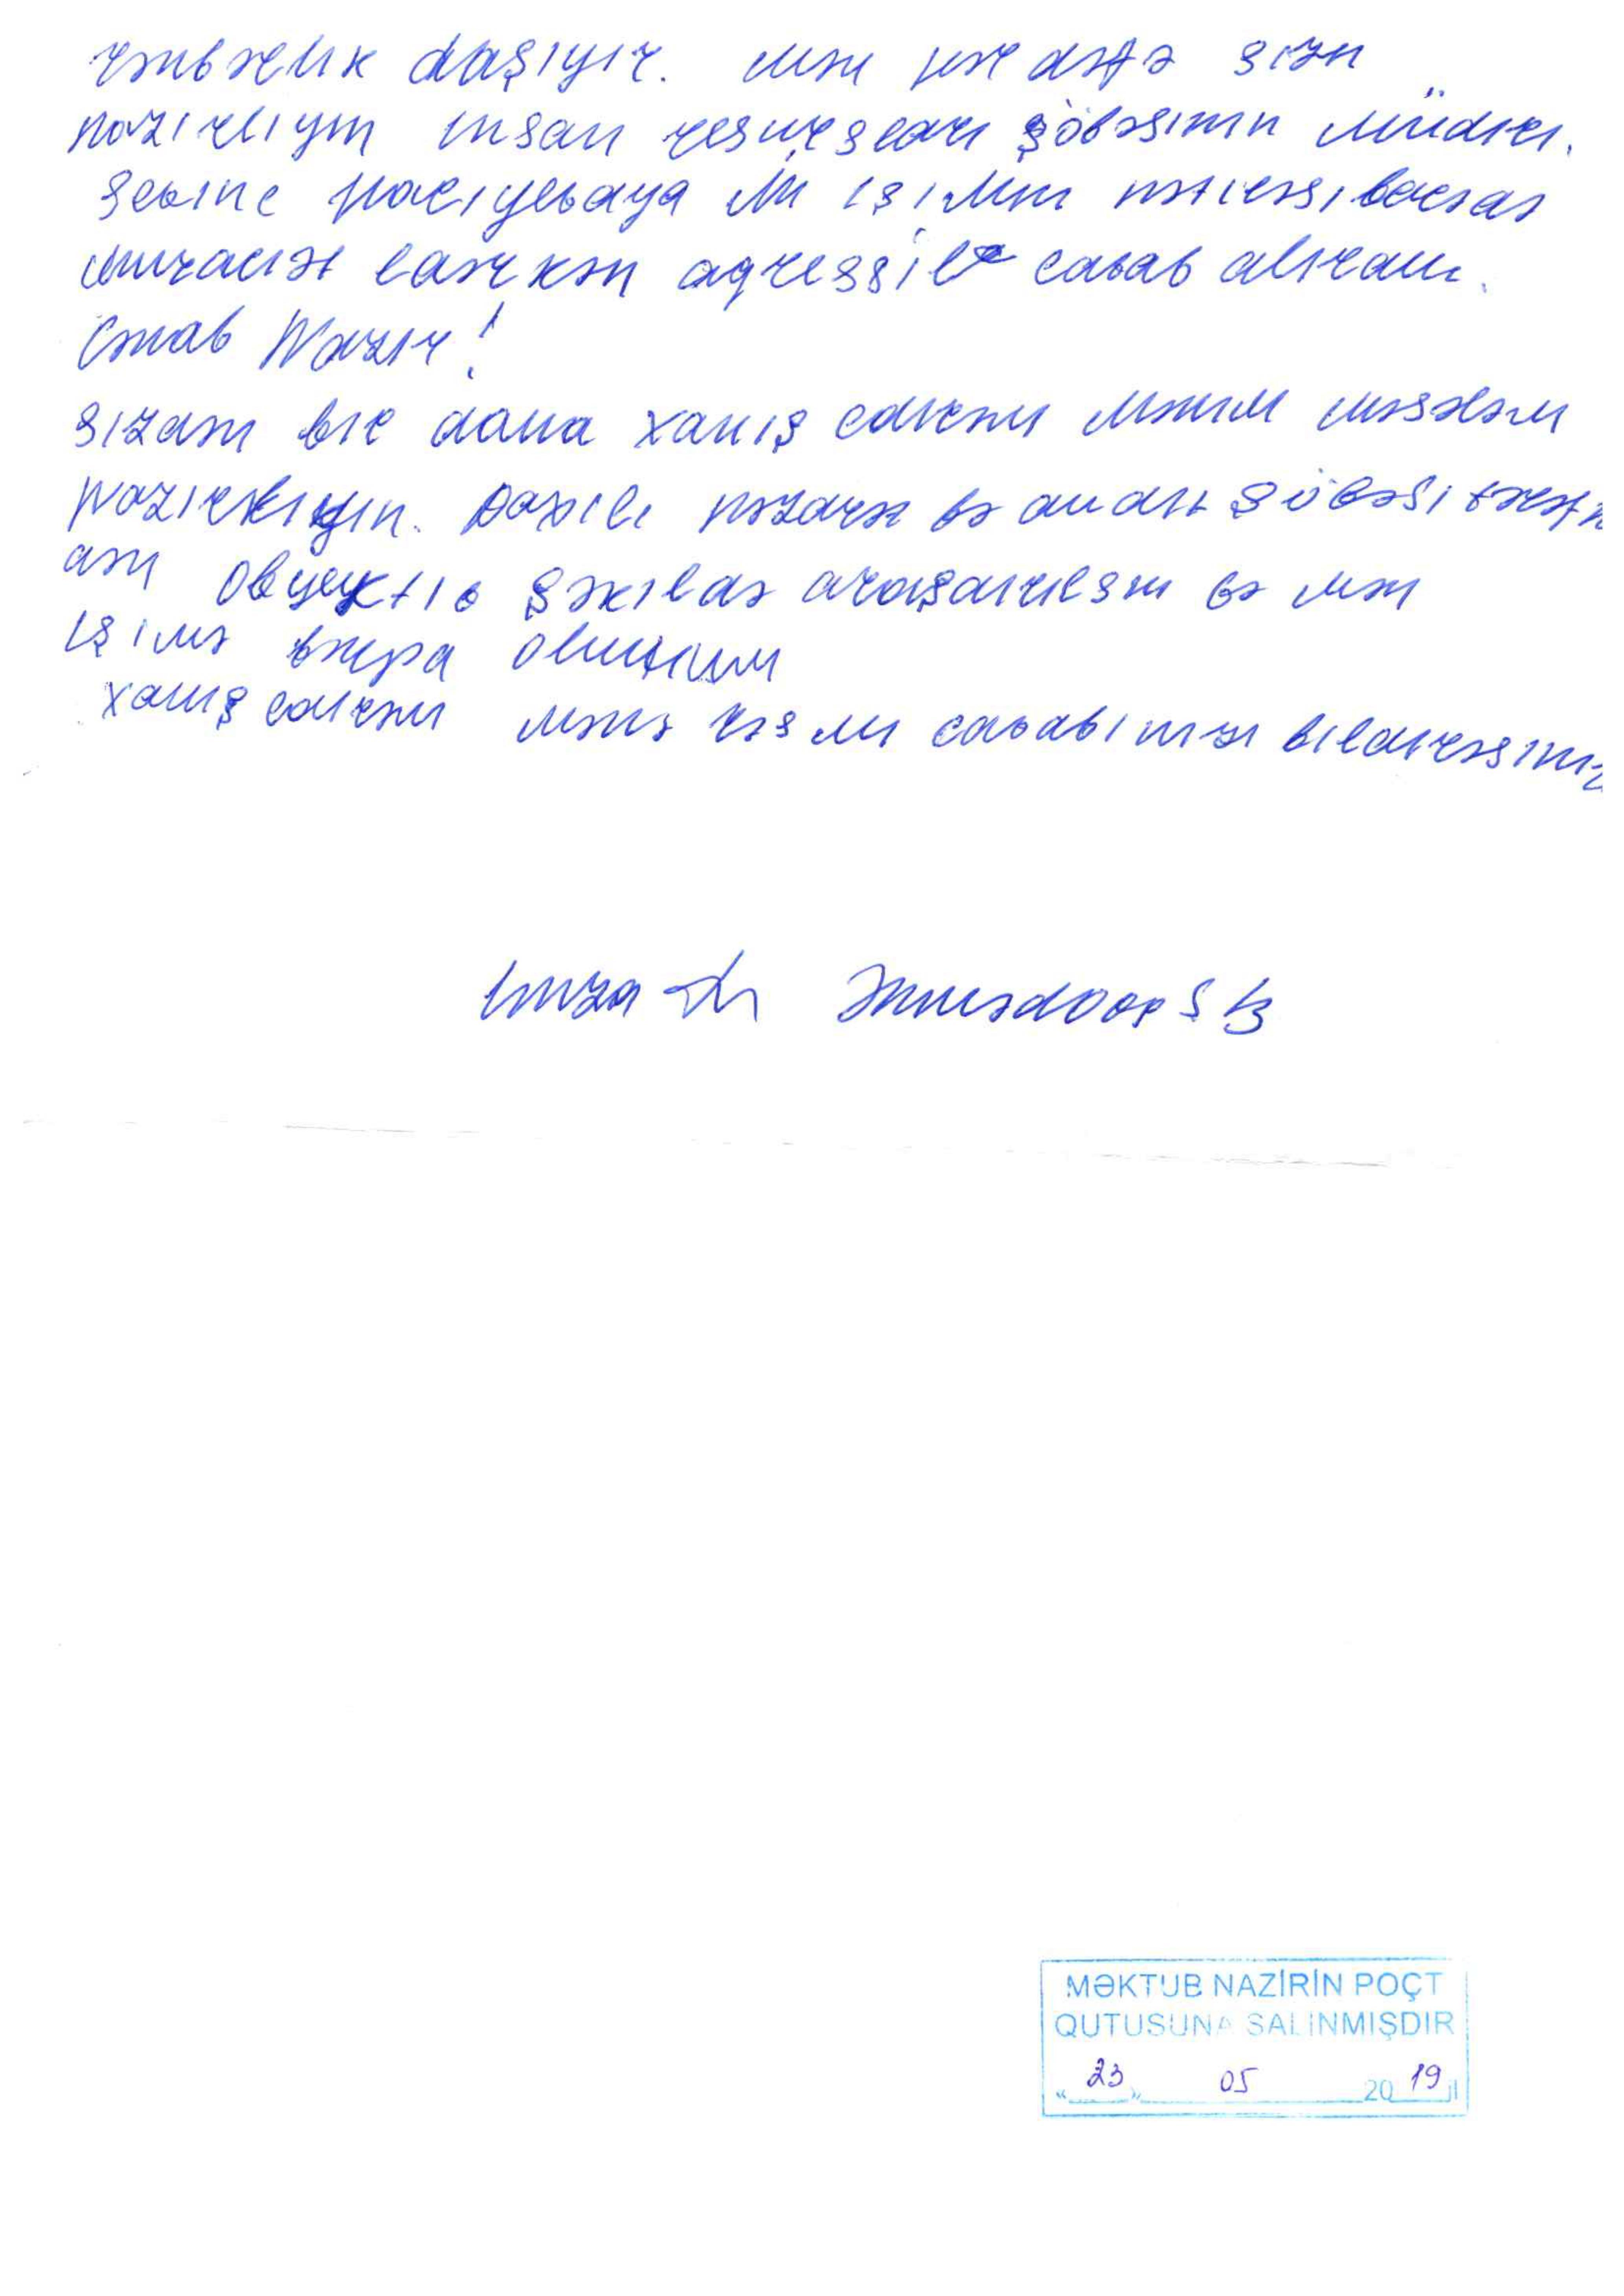 rəhbərlik daşıyır. Mən hər dəfə sizn
nazirliyin insan resursları şöbəsinin müdiri.
Sevinc Hacıyevaya işimin nəticəsi barədə
müraciət edərkən aqressiv cavab alıram.
Cənab Nazir!
Sizdən bir daha xahiş edirəm mənim məsələm
Nazirliyin. Daxili nəzarət və audit şöbəsi tərəfn
dən obyektiv şəkildə araşdırılsın və mən
işimə bərpa olunum
Xahiş edirəm mənə rəsmi cavabınızı bildirəsiniz
İmza Əhmədova Ş B
MƏKTUB NAZİRİN POÇT
QUTUSUNA SALINMIŞDIR
"23" 05 2019 il